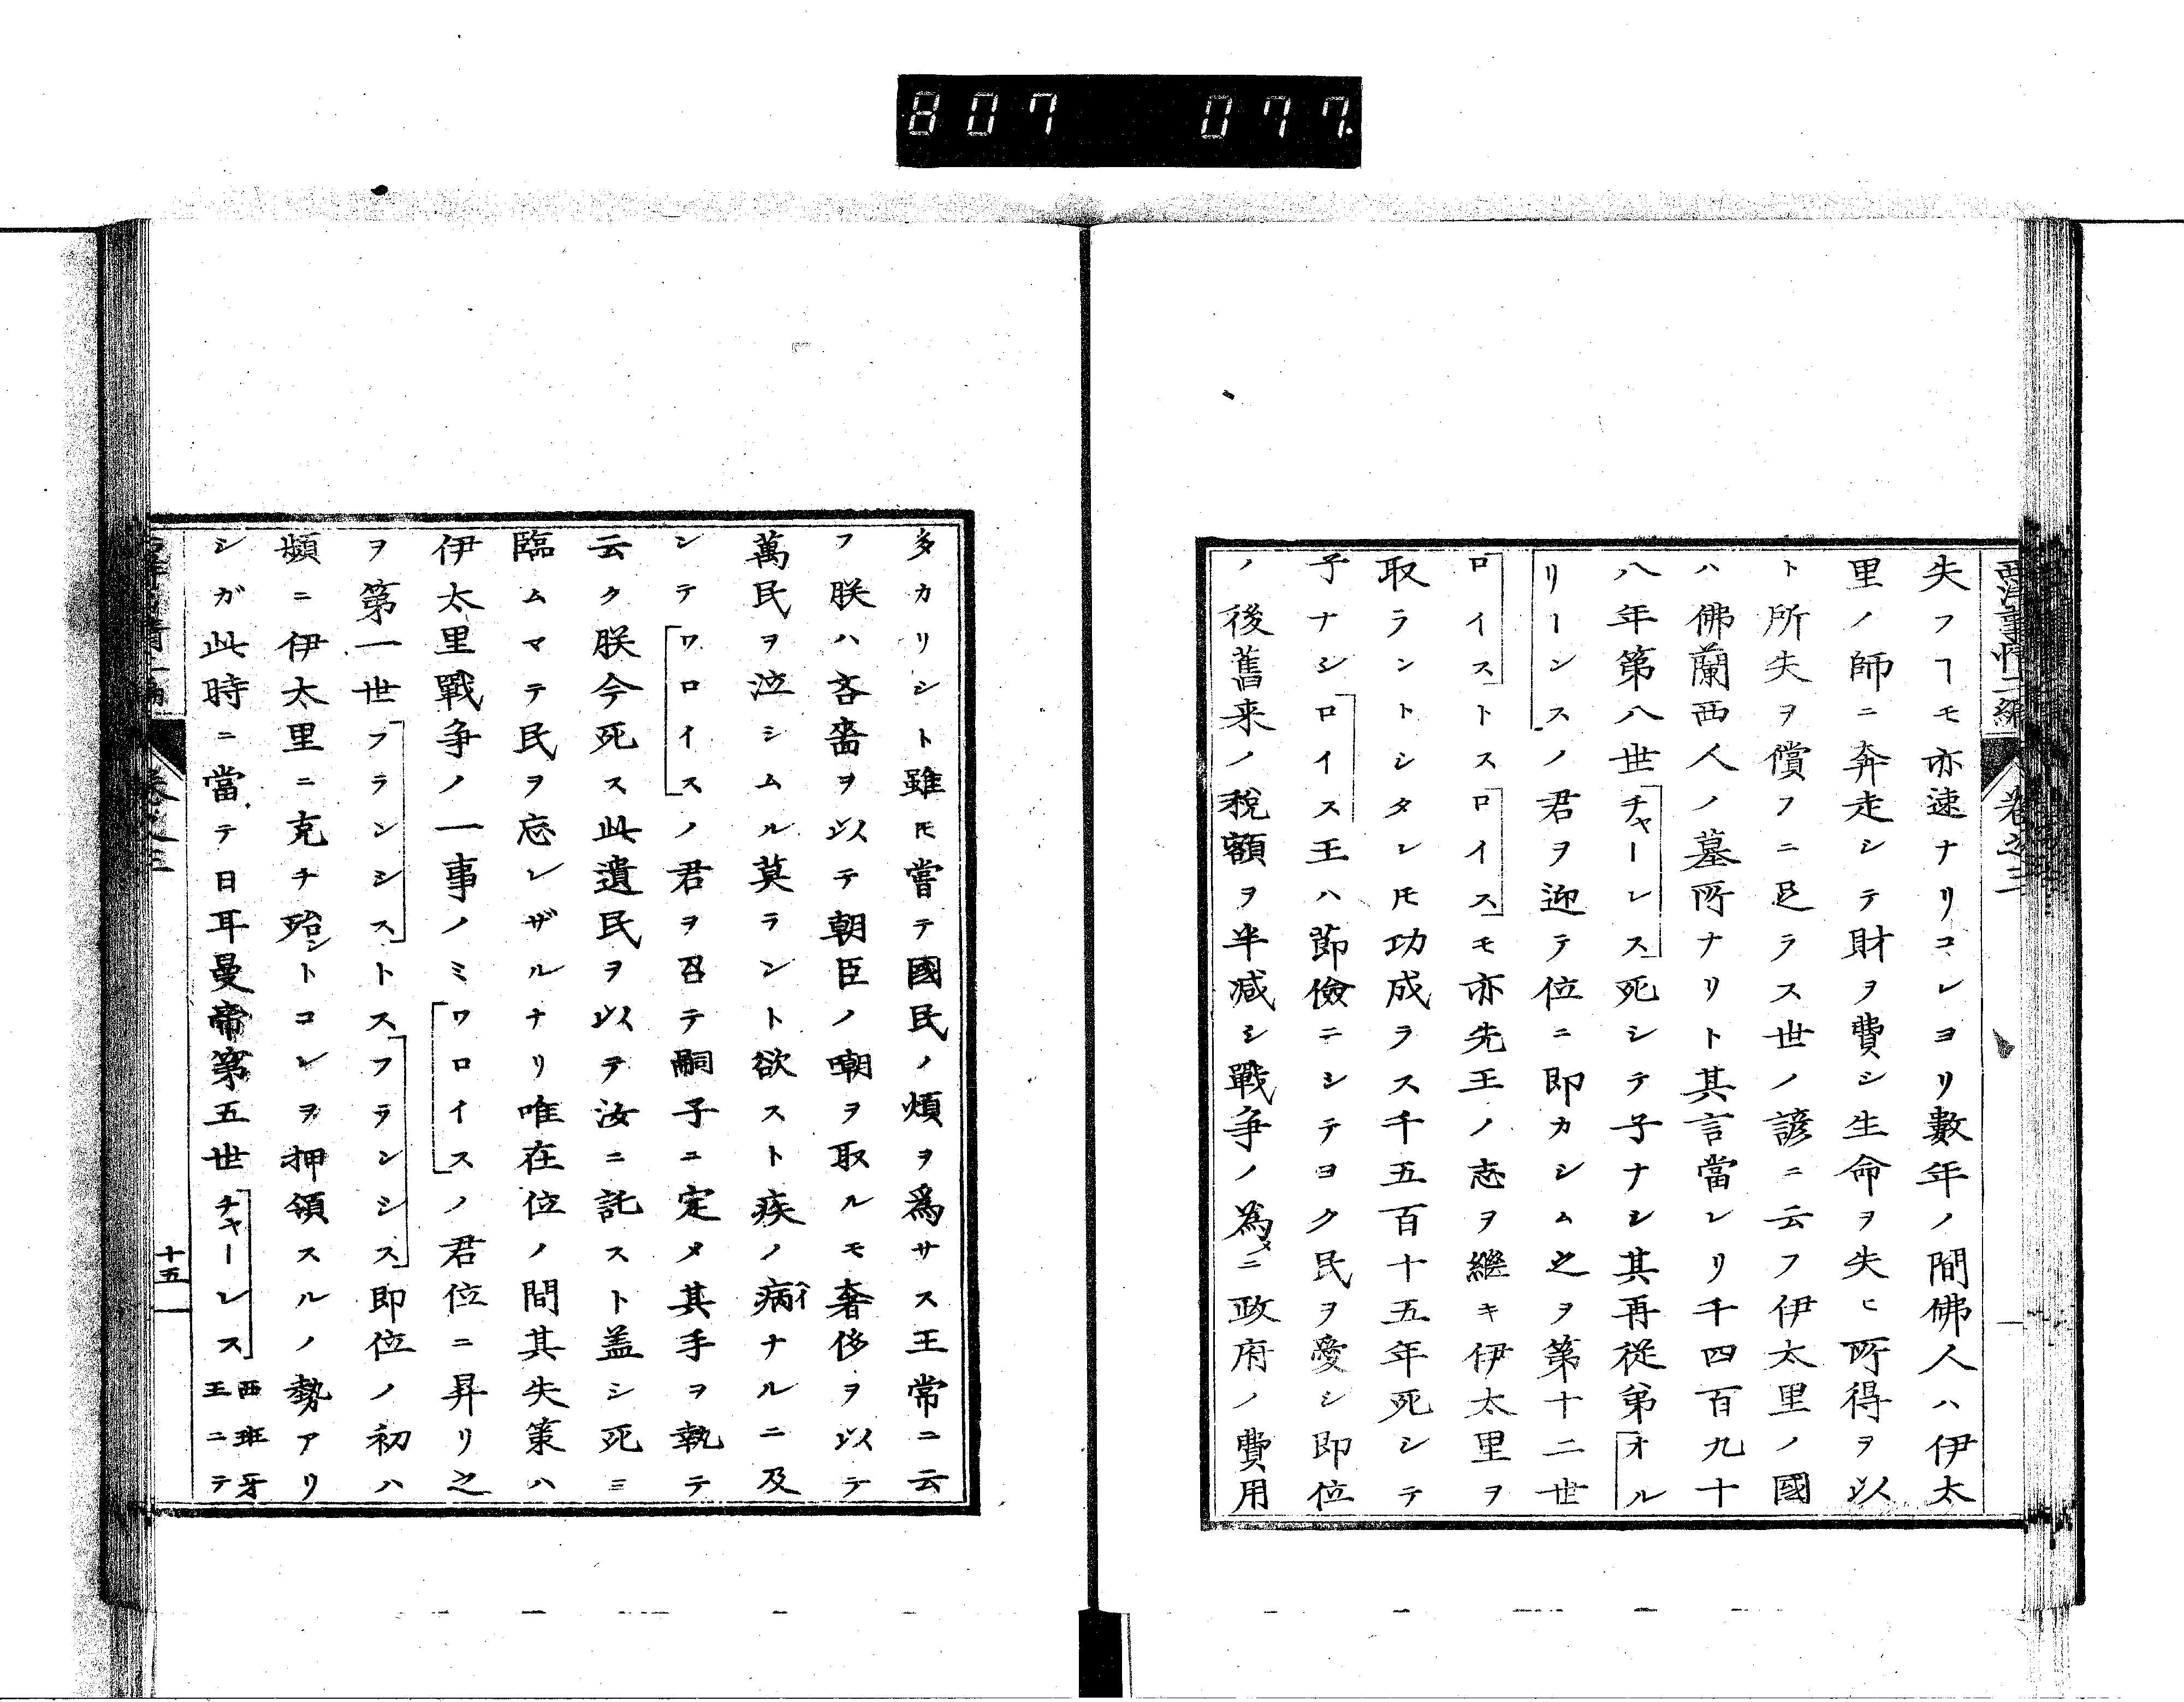 807 077.
西洋事情二編 卷之三
失フヿモ亦速ナリコレヨリ數年ノ間佛人ハ伊太
里ノ師ニ奔走シテ財ヲ費シ生命ヲ失ヒ所得ヲ以
ト所失ヲ償フニ足ラス世ノ諺ニ云フ伊太里ノ國
ハ佛蘭西人ノ墓所ナリト其言當レリ千四百九十
八年第八世チャーレス死シテ子ナシ其再從弟オル
リーンスノ君ヲ迎テ位ニ即カシム之ヲ第十二世
ロイストスロイスモ亦先王ノ志ヲ繼キ伊太里ヲ
取ラントシタレㇳモ功成ラス千五百十五年死シテ
子ナシロイス王ハ節儉ニシテヨク民ヲ愛シ即位
ノ後舊来ノ税額ヲ半減シ戰争ノ為メニ政府ノ費用
多カリシト雖ㇳモ嘗テ國民ノ煩ヲ爲サス王常ニ云
フ朕ハ吝嗇ヲ以テ朝臣ノ嘲ヲ取ルモ奢侈ヲ以テ
萬民ヲ泣シムル莫ラント欲スト疾ノ病イナルニ及
ンテワロイスノ君ヲ召テ嗣子ニ定メ其手ヲ執テ
云ク朕今死ス此遺民ヲ以テ汝ニ託スト盖シ死ニ
臨ムマテ民ヲ忘レザルナリ唯在位ノ間其失策ハ
伊太里戰争ノ一事ノミワロイスノ君位ニ昇リ之
ヲ第一世フランシストスフランシス即位ノ初ハ
頻ニ伊太里ニ克チ殆ントコレヲ押領スルノ勢アリ
シガ此時ニ當テ日耳曼帝第五世チャーレス西班牙王ニテ
卷之三
十五